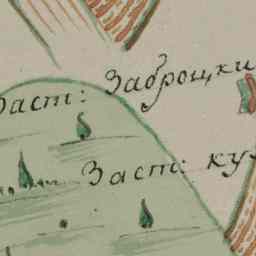 Заст: Заброцки
Заст: ку